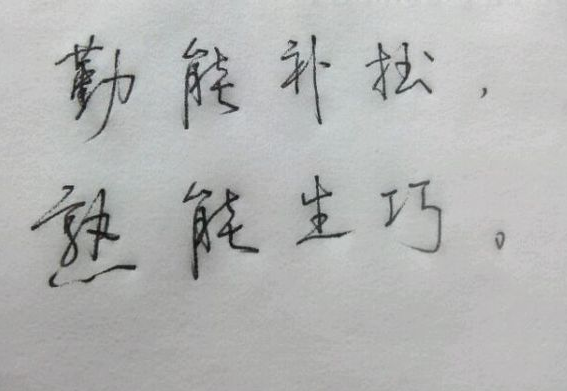 勤能补拙，
熟能生巧。